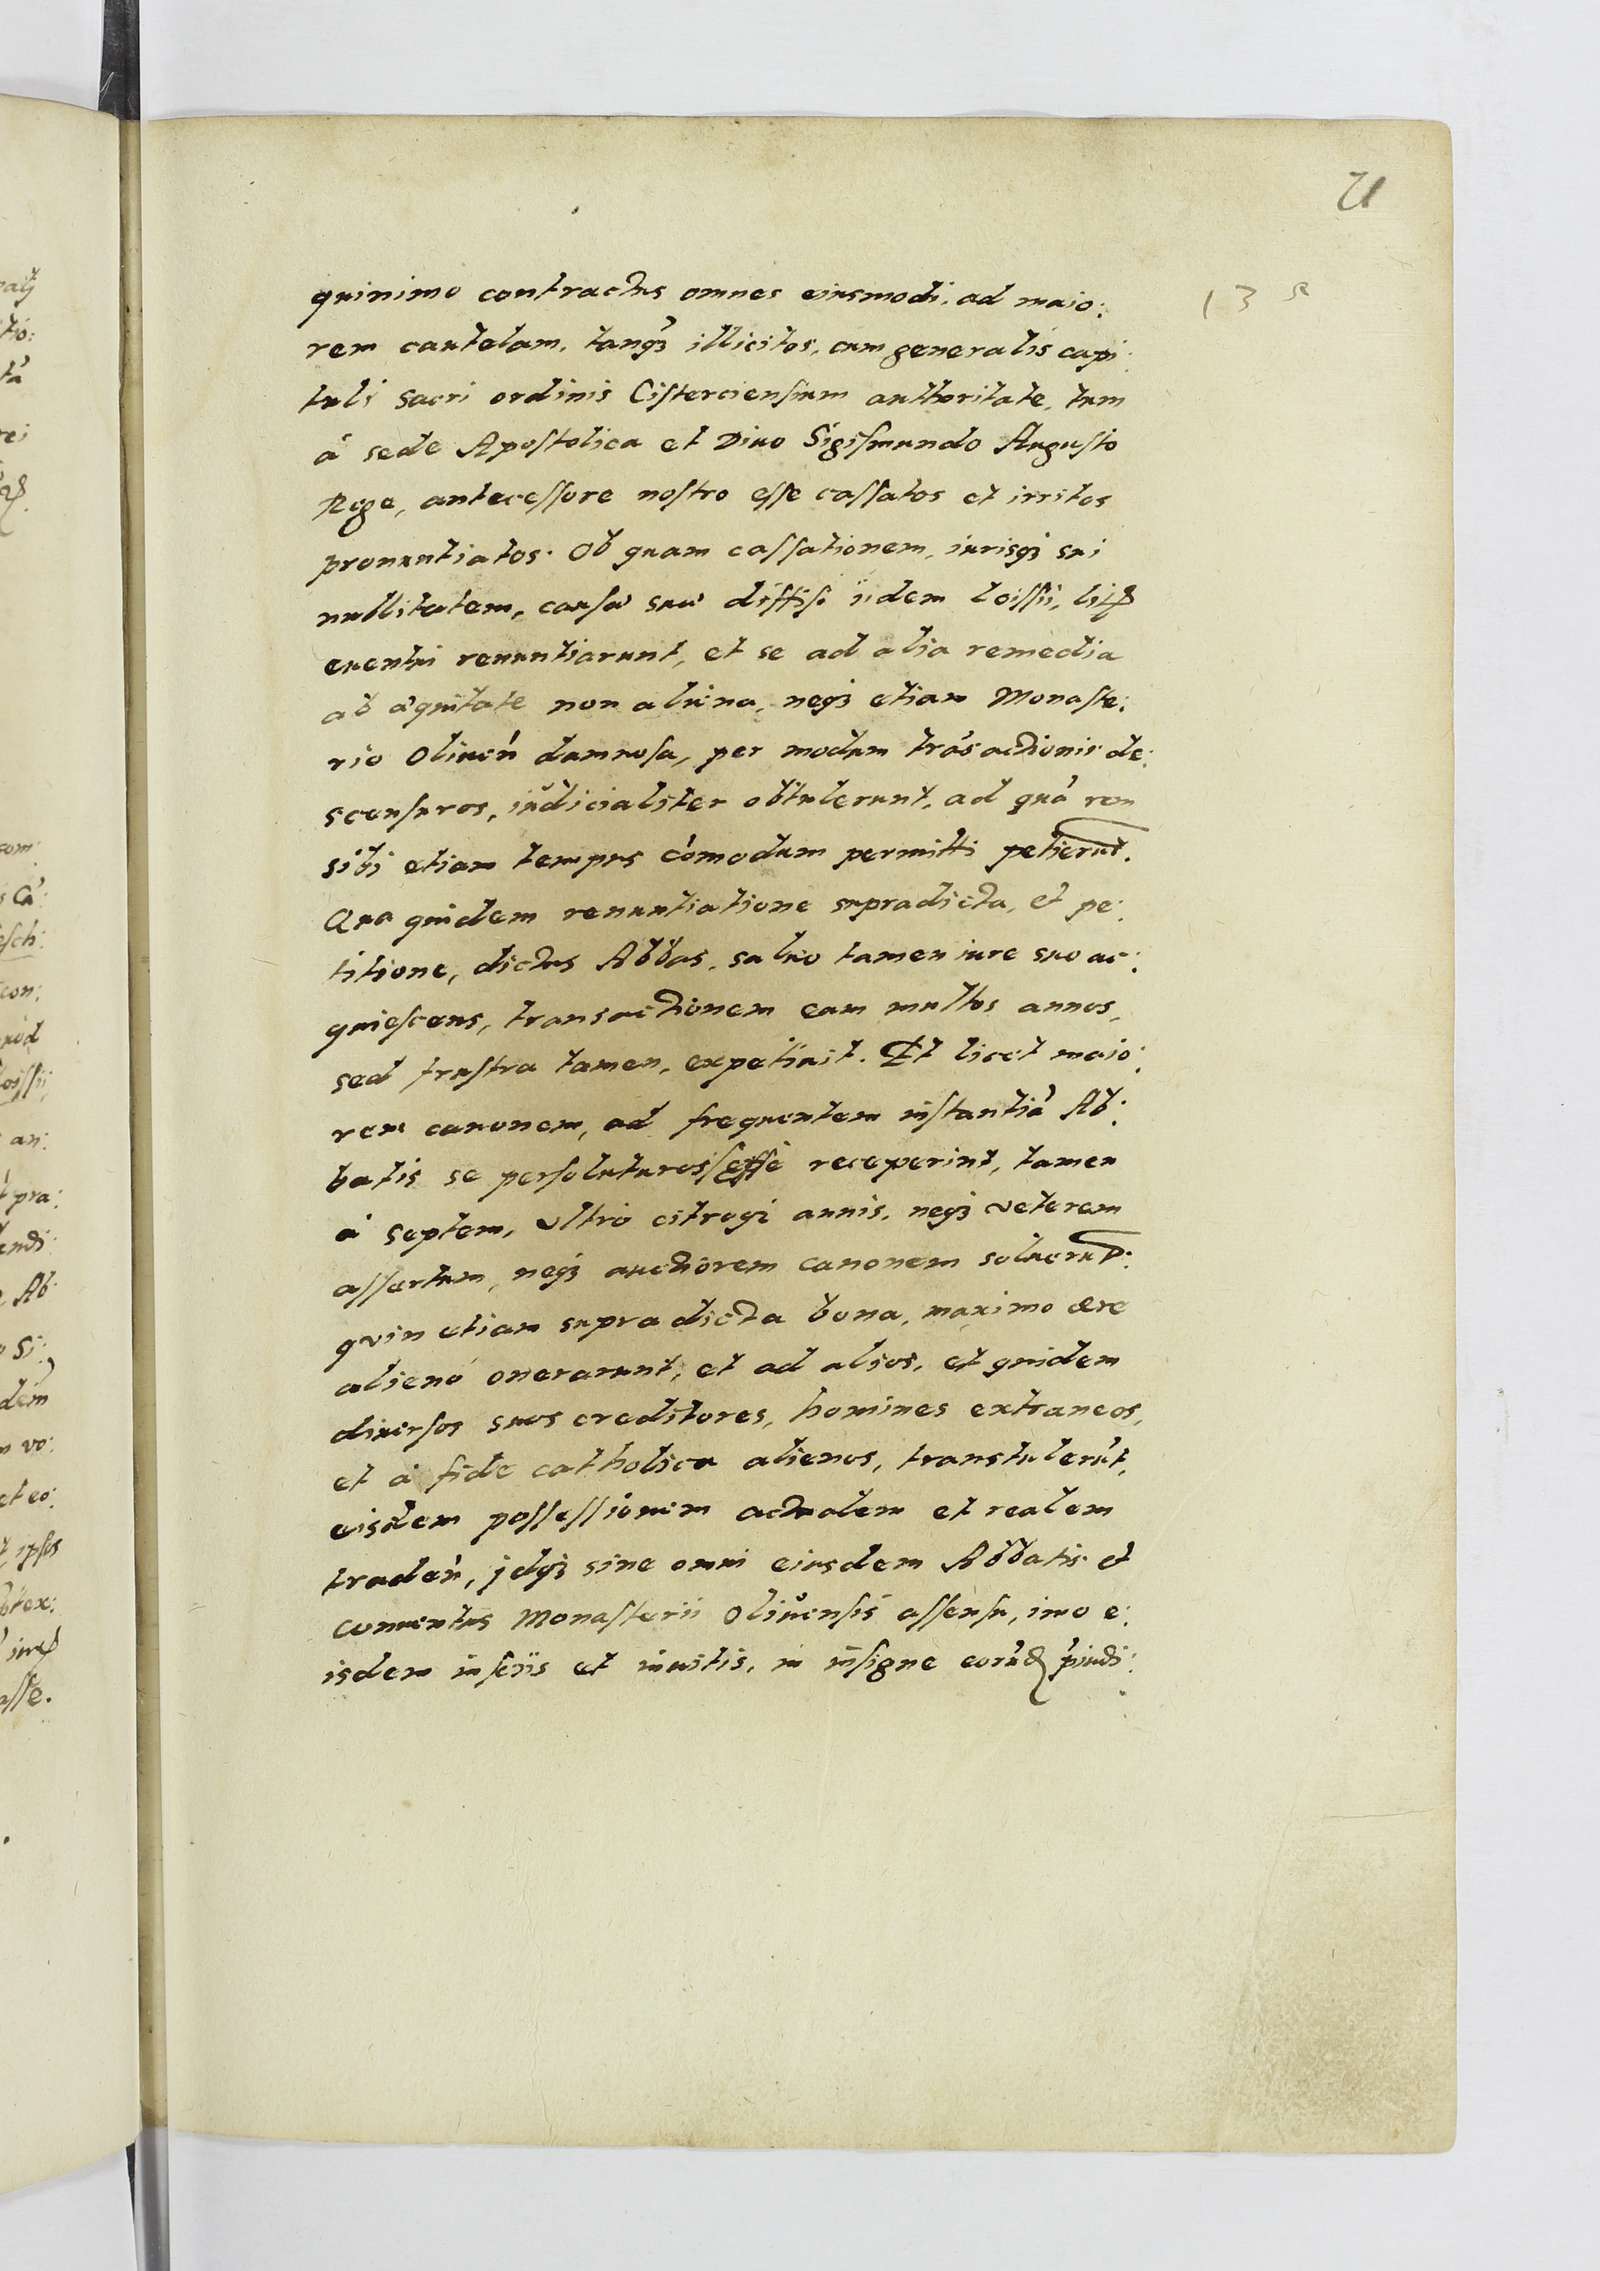 21
13
quinimo contractus omnes eiusmodi, ad maio:
rem cautelam, tanq3 illicitos, cum generalis capi:
tuli sacri ordinis Cisterciensium authoritate, tum
à sede Apostolica et Diuo Sigismundo Augusto
Rege, antecessore nostro esse cassatos et irritos
pronuntiatos. Ob quam cassationem, iurisq3 sui
nullitatem, causæ suæ diffisi iidem Loissii, litis
euentui renuntiarunt, et se ad alia remedia
ab æquitate non aliena, neq3 etiam Monaste:
rio Oliuen̄ damnosa, per modum trāsactionis de:
scensuros, iudicialiter obtulerunt, ad quā rem
sibi etiam tempus cōmodum permitti petierūt.
Qua quidem renuntiatione supradicta, et pe:
titione, dictus Abbas, saluo tamen iure suo ac:
quiescens, transactionem eam multos annos,
sed frustra tamen, expetiuit. Et licet maio:
rem canonem, ad frequentem instantiā Ab:
batis se persoluturos esse receperint, tamen
à septem, vltrò citroq3 annis, neq3 veterem
assertum, neq3 auctiorem canonem soluerūt:
quin etiam supradicta bona, maximo ære
alieno onerarunt, et ad alios, et quidem
diuersos suos creditores, homines extraneos,
et à fide catholica alienos, transtulerūt,
eisdem possessionem actualem et realem
traden̄, idq3 sine omni eiusdem Abbatis et
Conuentus Monasterii Oliuensis assensu, imo e:
isdem insciis et inuitis, in insigne eorūd p̄iudi: